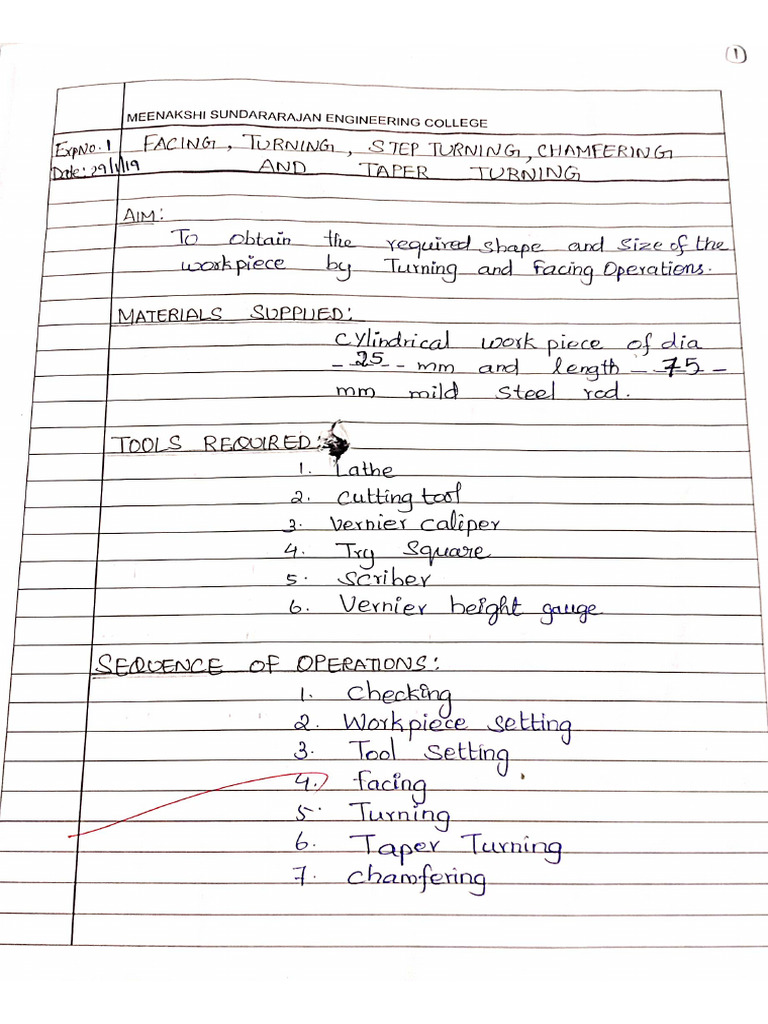 1
MEENAKSHI SUNDARARAJAN ENGINEERING COLLEGE
ExpNo. 1 FACING, TURNING, STEP TURNING, CHAMFERING
Date: 29/1/19 AND TAPER TURNING
AIM:
To obtain the required shape and size of the
workpiece by Turning and Facing Operations.
MATERIALS SUPPLIED:
Cylindrical work piece of dia
- 25 - mm and length - 75 -
mm mild steel rod.
TOOLS REQUIRED:
1. Lathe
2. Cutting tool
3. Vernier Caliper
4. Try Square
5. Scriber
6. Vernier height gauge
SEQUENCE OF OPERATIONS:
1. Checking
2. Workpiece setting
3. Tool Setting
4. facing
5. Turning
6. Taper Turning
7. Chamfering